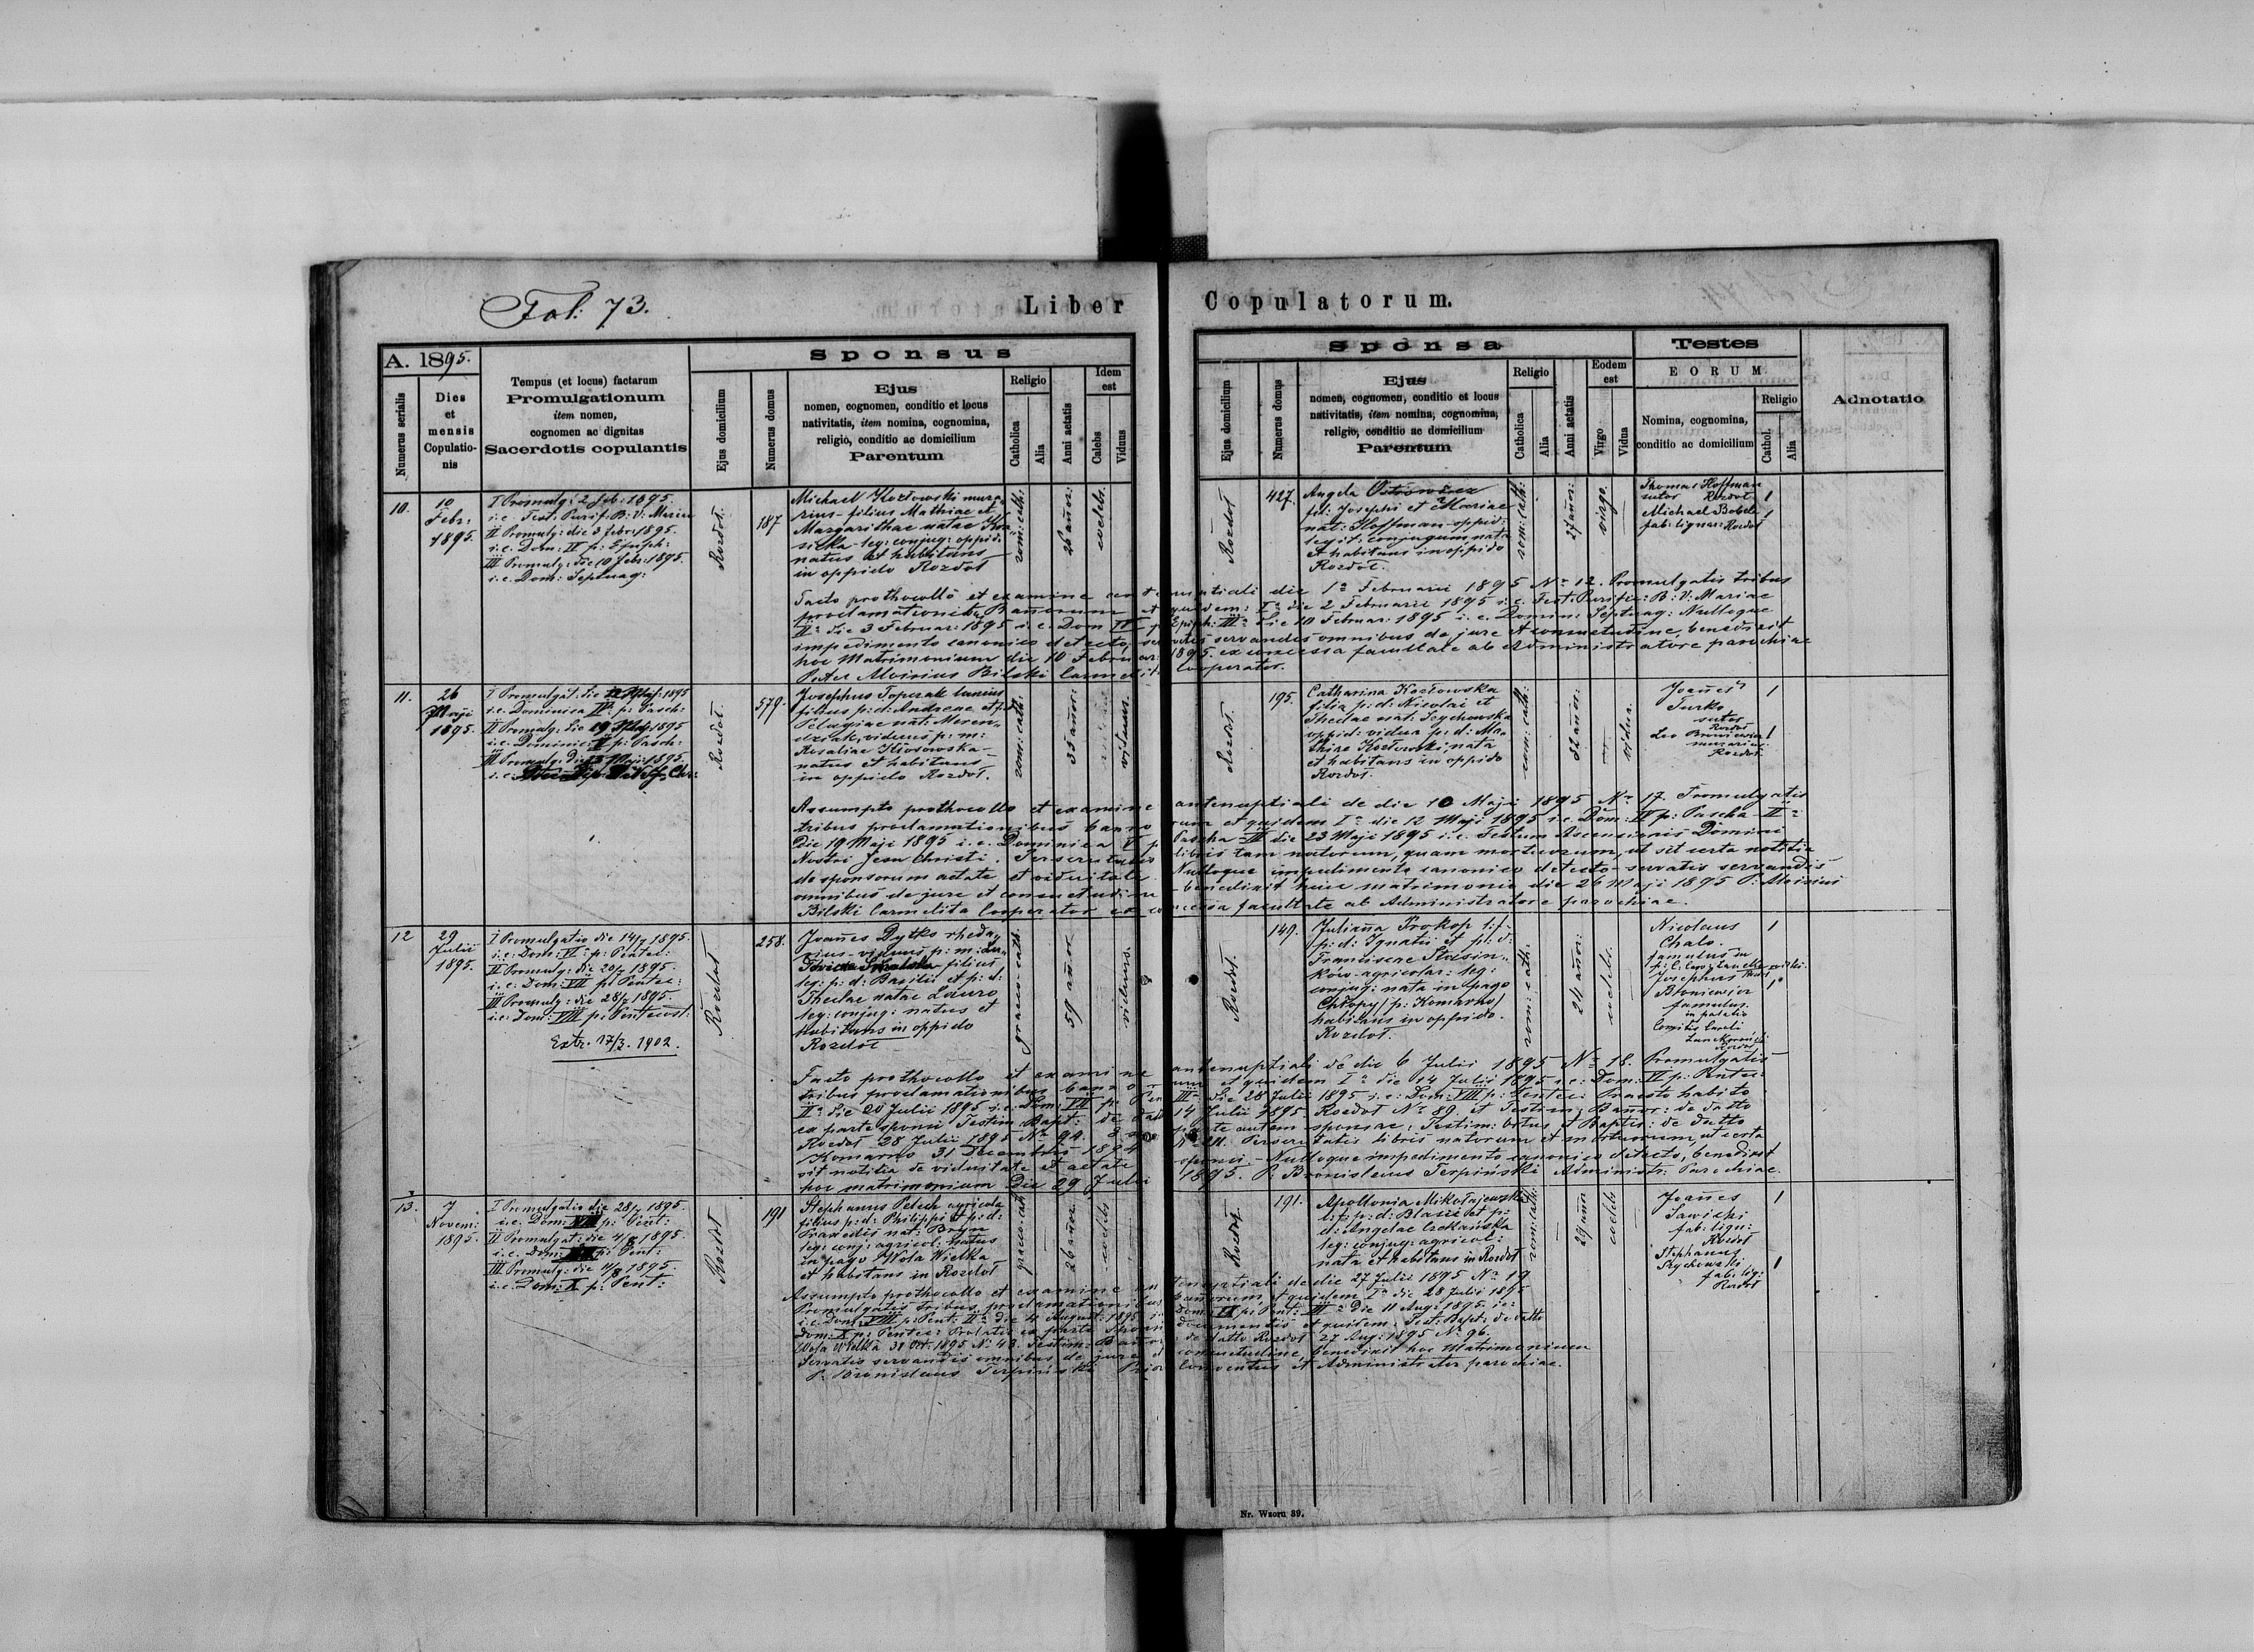 Fol: 73.
Liber Copulatorum.
A. 1895.
Numerus serialis
Dies
et
mensis
Copulatio-
nis
Tempus (et locus) factarum
Promulgationum
item nomen,
cognomen ac dignitas
Sacerdotis copulantis
Sponsus
Ejus domicilium
Numerus domus
Ejus
nomen, cognomen, conditio et locus
nativitatis, item nomina, cognomina,
religio, conditio ac domicilium
Parentum
Religio
Catholica
Alia
Anni aetatis
Idem
est
Calebs
Viduus
Sponsa
Ejus domicilium
Numerus domus
Ejus
nomen, cognomen, conditio et locus
nativitatis, item nomina, cognomina,
religio, conditio ac domicilium
Parentum
Religio
Catholica
Alia
Anni aetatis
Eodem
est
Virgo
Vidua
Testes
EORUM
Nomina, cognomina,
conditio ac domicilium
Religio
Cathol.
Alia
Adnotatio
10.
10
Febr:
1895.
I Promulg: 2 feb: 1895.
i.e. Fest. Purif. B: V: Mariae
II Promulg: die 3 febr: 1895.
i.e. Dom: IV p: Epiph:
III Promulg: die 10 febr: 1895.
i.e. Dom: Septuag:
Rozdoł.
187
Michael Kozłowski mura-
rius - filius Mathiae et
Margarithae natae
leg: conjug: oppid:
natus et habitans
in oppido Rozdoł
rom: cath:
26 añor:
coelebs.
Rozdoł
427.
Angela
fil: Josephi et Mariae
nat: Hoffman - oppid:
legit: conjugum nata
et habitans in oppido
Rozdoł.
rom: cath:
27 añor:
virgo.
Thomas Hoffman
sutor Rozdoł 1
Michael Bobela
fab: lignar: Rozdoł 1
Facto prothocollo et examine antenuptiali die 1a Februarii 1895 No 12. Promulgatis tribus
proclamationibus Bañorum et quidem: Ia die 2 Februarii 1895 i.e. Fest: Purific: B: V: Mariae
IIa die 3 Februar: 1895 i.e. Dom IV p. Epiph: IIIa die 10 Februar: 1895 i.e. Domin: Septuag: Nulloque
impedimento canonico detecto, servatis servandis omnibus de jure et consuetudine, benedixit
hoc Matrimonium die 10 Februar: 1895. ex concessa facultate ab Administratore parochiae
Pater Aloisius Bilski Carmelita Cooperator.
11.
26
Maji
1895.
I Promulgat: die 12 Maji: 1895
i.e. Dominica IV p: Pasch:
II Promulg: die 19 Maji 1895
i.e. Dominic: V p: Pasch:
III Promulg: die 23 Maji 1895.
i.e.
Rozdoł.
579.
Josephus Toperzak lanius
filius p: d: Andreae et p: d:
Pelagiae nat:
viduus p: m:
Rosaliae
natus et habitans
in oppido Rozdoł.
rom: cath:
55 añor:
viduus.
Rozdoł.
195.
Catharina Kozłowska
filia p: d: Nicolai et
Theclae nat: Szychowska
oppid: vidua p: d: Ma-
thiae Kozłowski, nata
et habitans in oppido
Rozdoł.
rom: cath:
52 añor:
vidua.
Joañes
Turko
sutor
Rozdoł 1
Leo Broniewicz
murarius
Rozdoł. 1
Assumpto prothocollo et examine antenuptiali de die 10 Maji 1895 No 17. Promulgatis
tribus proclamationibus bannorum et quidem Ia die 12 Maji 1895 i.e. Dom: IV p: Pascha - IIa
die 19 Maji 1895 i.e. Dominica V p Pascha - III die 23 Maji 1895 i.e. Festum Ascensionis Domini
Nostri Jesu Christi. Perscrutatis libris tam natorum, quam mortuorum, ut sit certa notitia
de sponsorum aetate et viduitate. Nulloque impedimento canonico detecto - servatis servandis
omnibus de jure et consuetudine - benedixit huic matrimonio die 26 Maji 1895 P: Aloisius
Bilski Carmelita Cooperator ex concessa facultate ab Administratore parochiae.
12
29
Julii
1895.
I Promulgatio die 14/7 1895.
i.e. Dom: VI p: Pentec:
II Promulg: die 20/7 1895.
i.e. Dom: VII p: Pentec:
III Promulg: die 28/7 1895.
i.e. Dom: VIII p: Pentecost:
Extr. 17/3. 1902.
Rozdoł
258.
Joañes Dytko rheda-
rius - viduus p: m:
filius
leg: p: d: Basilii et p: d:
Theclae natae Lauro
leg: conjug: natus et
habitans in oppido
Rozdoł
graeco-cath.
59 añor
viduus.
Rozdoł.
149.
Juliaña Prokop l: f:
p: d: Ignatii et p: d:
Franciscae Stasin-
ków - agricolar: leg:
conjug: nata in pago
Chłopy / p: Komarno /
habitans in oppido.
Rozdoł.
rom: cath:
24 añor:
coelebs.
Nicolaus
Chalo.
famulus in 1
Josephus
Broniewicz 1
famulus.
in palatio
Comitis Caroli
Lanckoroński
Rozdoł
Facto prothocollo et examine antenuptiali de die 6 Julii 1895 No 18. Promulgatis
tribus proclamationibus bannorum et quidem Ia die 14 Julii 1895 i.e: Dom: VI p: Pentec:
IIa die 20 Julii 1895 i.e: Dom: VII p: Pen III die 28 Julii 1895 i.e: Dom: VIII p: Pentec: Praesto habito
ex parte sponsi Testim: Bapt: de datto 14 Julii 1895 Rozdoł No 89. et Testim: Bañor: de datto
Rozdoł 28 Julii 1895 No 94. parte autem sponsae: Testim: ortus et Baptis: de datto
Komarno 31 Decembris 1894 No 211. Perscrutatis libris natorum et mortuorum, ut certa
sit notitia de viduitate et aetate sponsi - Nulloque impedimento canonico detecto, benedixit
hoc matrimonium die 29 Julii 1895. P. Bronislaus Terpiński Administr. Parochiae.
13.
7
Novem:
1895.
I Promulgatio die 28/7 1895.
i.e. Dom: VIII p: Pent:
II Promulgat: die 4/8 1895.
i.e. Dom: p: Pent:
III Promulg: die 11/8 1895.
i.e. Dom: X p: Pent:
Rozdoł
191
Stephanus Pelech agricola
filius p: d: Philippi et p: d:
Praxedis nat: Bryn
leg: conj: agricol: natus
in pago Wola Wielka
et habitans in Rozdoł
graeco-cath
26 añor.
coelebs
Rozdoł.
191.
Apollonia Mikołajewska
l: f: p: d: Blasii et p:
d: Angelae Czekańska
leg: conjug: agricol:
nata et habitans in Rozdoł
rom: cath:
29 añor
coelebs
Joañes
Sawicki
fab: lign:
Rozdoł 1
Stephanus
Szychowski
fab: lig:
Rozdoł 1
Assumpto prothocollo et examine antenuptiali de die 27 Julii 1895 No 19
Promulgatis tribus proclamationibus bañorum et quidem Ia die 28 Julii 1895
i.e. Dom: VIII p: Pent: IIa die 4 August: 1895 i: Dom: IX p: Pent: III die 11 Aug: 1895. i.e:
Dom: X p: Pentec: Prolatis ex parte sponsi documentis et quidem: Test: Bapt: de datto
Wola Wielka 31 Oct: 1895 No 43. Testim: Bañor: de datto Rozdoł 27 Aug: 1895 No 96.
Servatis servandis omnibus de jure et consuetudine, benedixit hoc Matrimonium
P. Bronislaus Terpiński Prior Conventus et Administrator parochiae.
Nr. Wzoru 39.